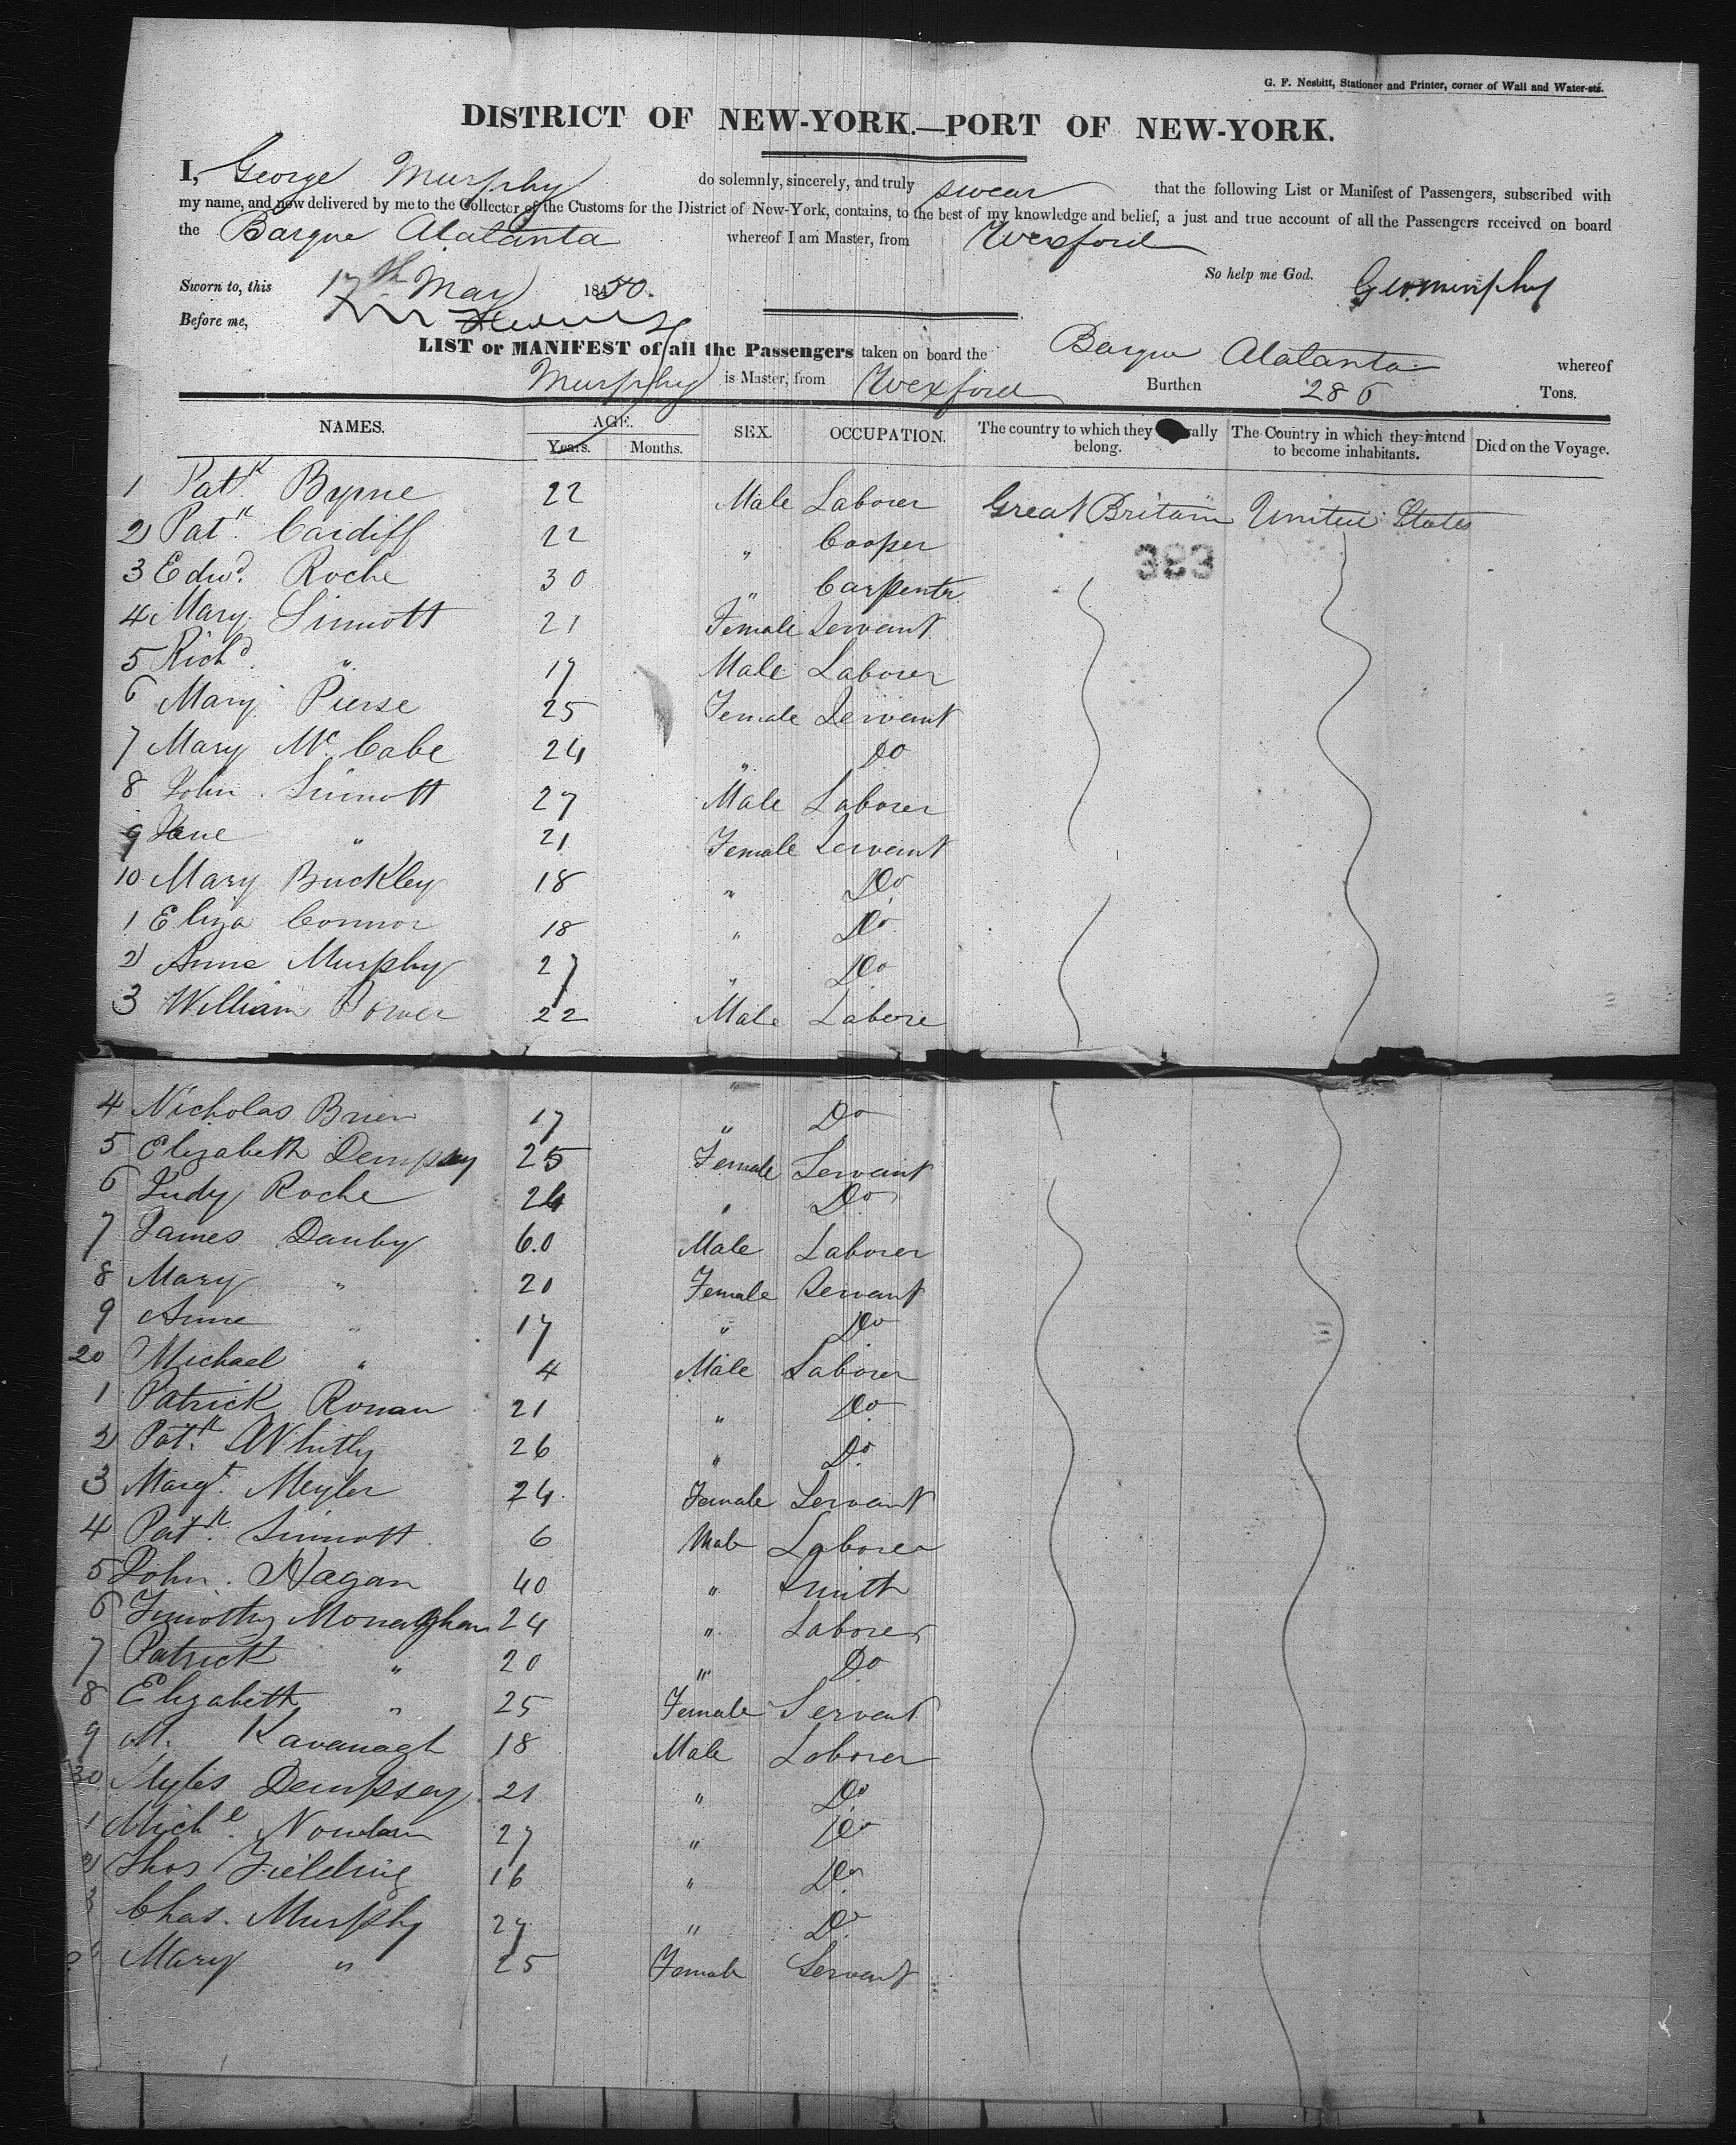 G. F. Nesbitt, Stationer and Printer, corner of Wall and Water-sts.
DISTRICT OF NEW-YORK.—PORT OF NEW-YORK.
I, George Murphy do solemnly, sincerely, and truly swear that the following List or Manifest of Passengers, subscribed with
my name, and now delivered by me to the Collector of the Customs for the District of New-York, contains, to the best of my knowledge and belief, a just and true account of all the Passengers received on board
the Barque Atalanta whereof I am Master, from Wexford
So help me God. Geo Murphy
Sworn to, this 17th May 1850.
Before me,
LIST or MANIFEST of all the Passengers taken on board the Barque Atalanta whereof
Murphy is Master, from Wexford Burthen 286 Tons.
NAMES. AGE. SEX. OCCUPATION. The country to which they belong. The Country in which they intend to become inhabitants. Died on the Voyage.
Years. Months.
1 Patk. Byrne 22 Male Laborer Great Britain United States
2 Patk. Cardiff 22 " Cooper
393
3 Edwd. Roche 30 " Carpenter
4 Mary Sinnott 21 Female Servant
5 Richd. " 17 Male Laborer
6 Mary Pierse 25 Female Servant
7 Mary Mc. Cabe 24 " Do
8 John Sinnott 27 Male Laborer
9 Jane " 21 Female Servant
10 Mary Buckley 18 " Do
1 Eliza Connor 18 " Do
2 Anne Murphy 27 " Do
3 William Power 22 Male Labore
4 Nicholas Brien 17 " Do
5 Elizabeth Dempsey 25 Female Servant
6 Judy Roche 24 " Do
7 James Danby 60 Male Laborer
8 Mary " 20 Female Servant
9 Anne " 17 " Do
20 Michael " 4 Male Laborer
1 Patrick Ronan 21 " Do
2 Patk. Whitty 26 " Do
3 Margt. Meyler 24 Female Servant
4 Patk. Sinnott 6 Male Laborer
5 John Hagan 40 " Smith
6 Timothy Monaghan 24 " Laborer
7 Patrick " 20 " Do
8 Elizabeth " 25 Female Servant
9 M. Kavanagh 18 Male Laborer
30 Myles Dempsey 21 " Do
1 Michl. Nowlan 27 " Do
2 Thos Fielding 16 " Do
3 Chas. Murphy 27 " Do
Mary " 25 Female Servant